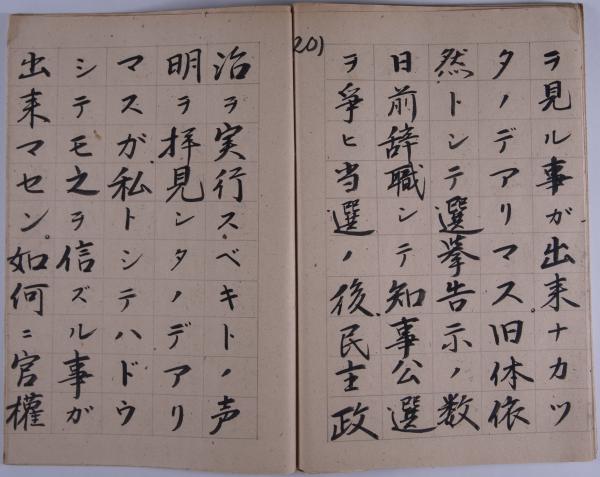 20)
ヲ見ル事が出来ナカツ
タノデアリマス。旧休依
然トシテ選挙告示ノ数
日前辞職シテ知事公選
ヲ爭ヒ当選ノ後民主政
治ヲ実行スベキトノ声
明ヲ拝見シタノデアリ
マスガ私トシテハドウ
シテモ之ヲ信ズル事が
出来マセン。如何ニ官權